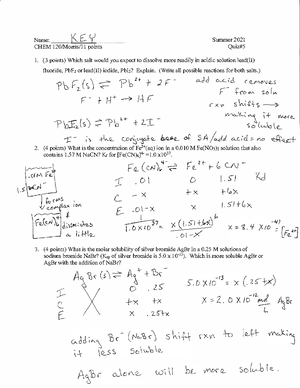 Name: KEY Summer 2021
CHEM 120/Morris/11 points Quiz#5
1. (3 points) Which salt would you expect to dissolve more readily in acidic solution lead(II)
fluoride, PbF₂ or lead(II) iodide, PbI₂? Explain. (Write all possible reactions for both salts.)
PbF₂(s) ⇌ Pb²⁺ + 2F⁻ add acid removes
F⁻ from soln
F⁻ + H⁺ → HF rxn shifts →
making it more
soluble
PbI₂(s) ⇌ Pb²⁺ + 2I⁻
I⁻ is the conjugate base of SA/add acid = no effect
2. (4 points) What is the concentration of Fe²⁺(aq) ion in a 0.010 M Fe(NO₃)₂ solution that also
contains 1.57 M NaCN? Kf for [Fe(CN)₆]⁴⁻ =1.0x10³⁷.
.01M Fe²⁺
1.57 CN⁻
Fe(CN)₆⁴⁻ ⇌ Fe²⁺ + 6CN⁻
I .01 0 1.51 Kd
C -x +x +6x
E .01-x x 1.51+6x
↓ forms
complex ion
Fe(CN)₆⁴⁻ dissociates
a little
1/1.0x10³⁷ = x(1.51+6x)⁶/.01-x
x = 8.4 x 10⁻⁴⁰
[Fe²⁺]
3. (4 points) What is the molar solubility of silver bromide AgBr in a 0.25 M solutions of
sodium bromide NaBr? (Ksp of silver bromide is 5.0 x 10⁻¹³). Which is more soluble AgBr or
AgBr with the addition of NaBr?
AgBr(s) ⇌ Ag⁺ + Br⁻
I 0 .25 5.0x10⁻¹³ = x(.25+x)
C +x +x x = 2.0 x 10⁻¹² mol/L
E x .25+x AgBr
adding Br⁻ (NaBr) shift rxn to left making
it less soluble
AgBr alone will be more soluble.